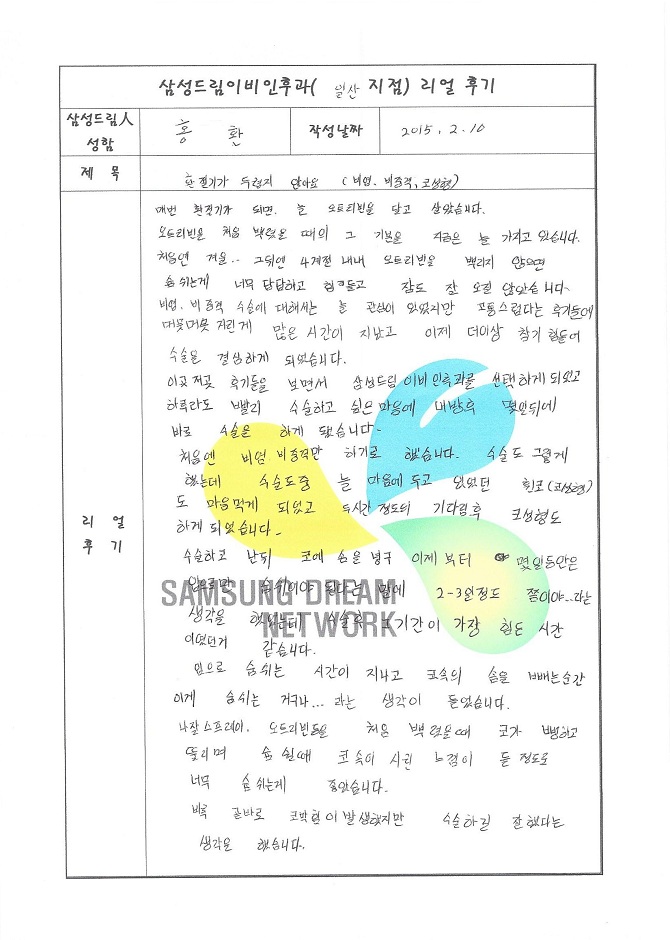 삼성드림이비인후과( 일산 지점) 리얼 후기
삼성드림人 성함
홍 환
작성날짜
2015. 2. 10
제 목
환절기가 두렵지 않아요 (비염, 비중격, 코성형)
리 얼 후 기
매번 환절기가 되면, 늘 오트리빈을 달고 살았습니다.
오트리빈을 처음 뿌렸을 때의 그 기분을 지금은 늘 가지고 있습니다.
처음엔 겨울.. 그뒤엔 4계절 내내 오트리빈을 뿌리지 않으면
숨쉬는게 너무 답답하고 힘들고 잠도 잘 오질 않았습니다.
비염, 비중격 수술에 대해서는 늘 관심이 있었지만 고통스럽다는 후기들에
머뭇머뭇 거린게 많은 시간이 지났고 이제 더이상 참기 힘들어
수술을 결심하게 되었습니다.
이곳저곳 후기들을 보면서 삼성드림이비인후과를 선택하게 되었고
하루라도 빨리 수술하고 싶은 마음에 내방후 몇일뒤에
바로 수술을 하게 됐습니다.
처음엔 비염, 비중격만 하기로 했습니다. 수술도 그렇게
했는데 수술도중 늘 마음에 두고 있었던 휜코(코성형)
도 마음먹게 되었고 두시간 정도의 기다림후 코성형도
하게 되었습니다.
수술하고 난뒤 코에 솜을 넣구 이제부터 몇일동안은
입으로만 숨쉬어야 된다는 말에 2-3일정도 쯤이야..라는
생각을 했었는데 수술후 그기간이 가장 힘든 시간
이었던거 같습니다.
입으로 숨쉬는 시간이 지나고 코속의 솜을 빼는순간
이게 숨쉬는 거구나... 라는 생각이 들었습니다.
나잘스프레이, 오트리빈등을 처음 뿌렸을때 코가 뻥하고
뚫리며 숨 쉴때 코속이 시린 느낌이 들 정도로
너무 숨쉬는게 좋았습니다.
비록 곧바로 코막힘이 발생했지만 수술하길 잘했다는
생각을 했습니다.
SAMSUNG DREAM
NETWORK